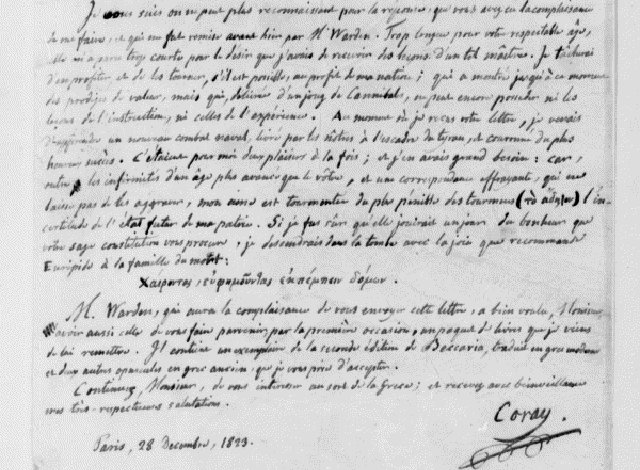 Je vous suis on ne peut plus reconnaissant pour la reponse, que vous avez eu la complaisance
de me faire, et qui me fut remise avant hier par Mr Warden. Trop longue pour votre respectable âge,
elle m'a paru trop courte pour le desir que j'avais de recevoir des leçons d'un tel maître. Je tâcherai
d'en profiter et de les tourner, s'il est possible, au profit de ma nation; qui a montré jusqu'à ce moment
des prodiges de valeur, mais qui, delivrée d'un joug de Cannibales, ne peut encore posseder ni les
lecons de l'instruction, ni celles de l'expérience. Au moment où je reçus votre lettre, je venais
d'apprendre un nouveau combat naval, livré par les nôtres à l'escadre du tyran, et couronné du plus
heureux succès. C'etaient pour moi deux plaisirs à la fois; et j'en avais grand besoin: car,
outre les infirmités d'un âge plus avancé que le vôtre, et une correspondance effrayante, qui ne
laisse pas de les aggraver, mon âme est tourmentée du plus pénible des tourmens (τὸ ἄδηλον) l'in-
certitude de l'etat futur de ma patrie. Si je fus sûr qu'elle jouirait un jour du bonheur que
votre sage constitution vous procure, je descendrais dans la tombe avec la joie que recommande
Euripide à la famille du mort:
Χαίροντας, εὐφημοῦντας ἐκπέμπειν δόμων.
M. Warden, qui aura la complaisance de vous envoyer cette lettre, a bien voulu, Monsieur,
avoir aussi celle de vous faire parvenir par la première occasion, un paquet de livres que je viens
de lui remettre. Il contient un exemplaire de la seconde édition de Beccaria, traduit en grec moderne
et deux autres opuscules en grec ancien que je vous prie d'accepter.
Continuez, Monsieur, de vous interesser au sort de la Grece; et recevez avec bienveillance
mes très-respectueuses salutations.
Coray.
Paris, 28 Decembre, 1823.